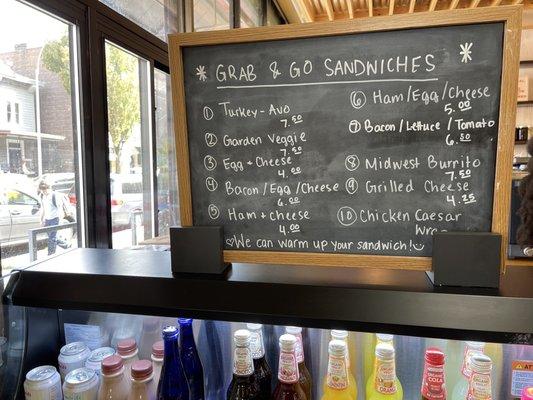 * GRAB & GO SANDWICHES *
① Turkey-Avo
7.50
② Garden Veggie
7.50
③ Egg + Cheese
4.00
④ Bacon/Egg/Cheese
6.00
⑤ Ham + cheese
4.00
⑥ Ham/Egg/Cheese
5.00
⑦ Bacon/Lettuce/Tomato
6.50
⑧ Midwest Burrito
4.50
⑨ Grilled Cheese
4.25
⑩ Chicken Caesar
Wrap
♡We can warm up your sandwich!☺
COLA